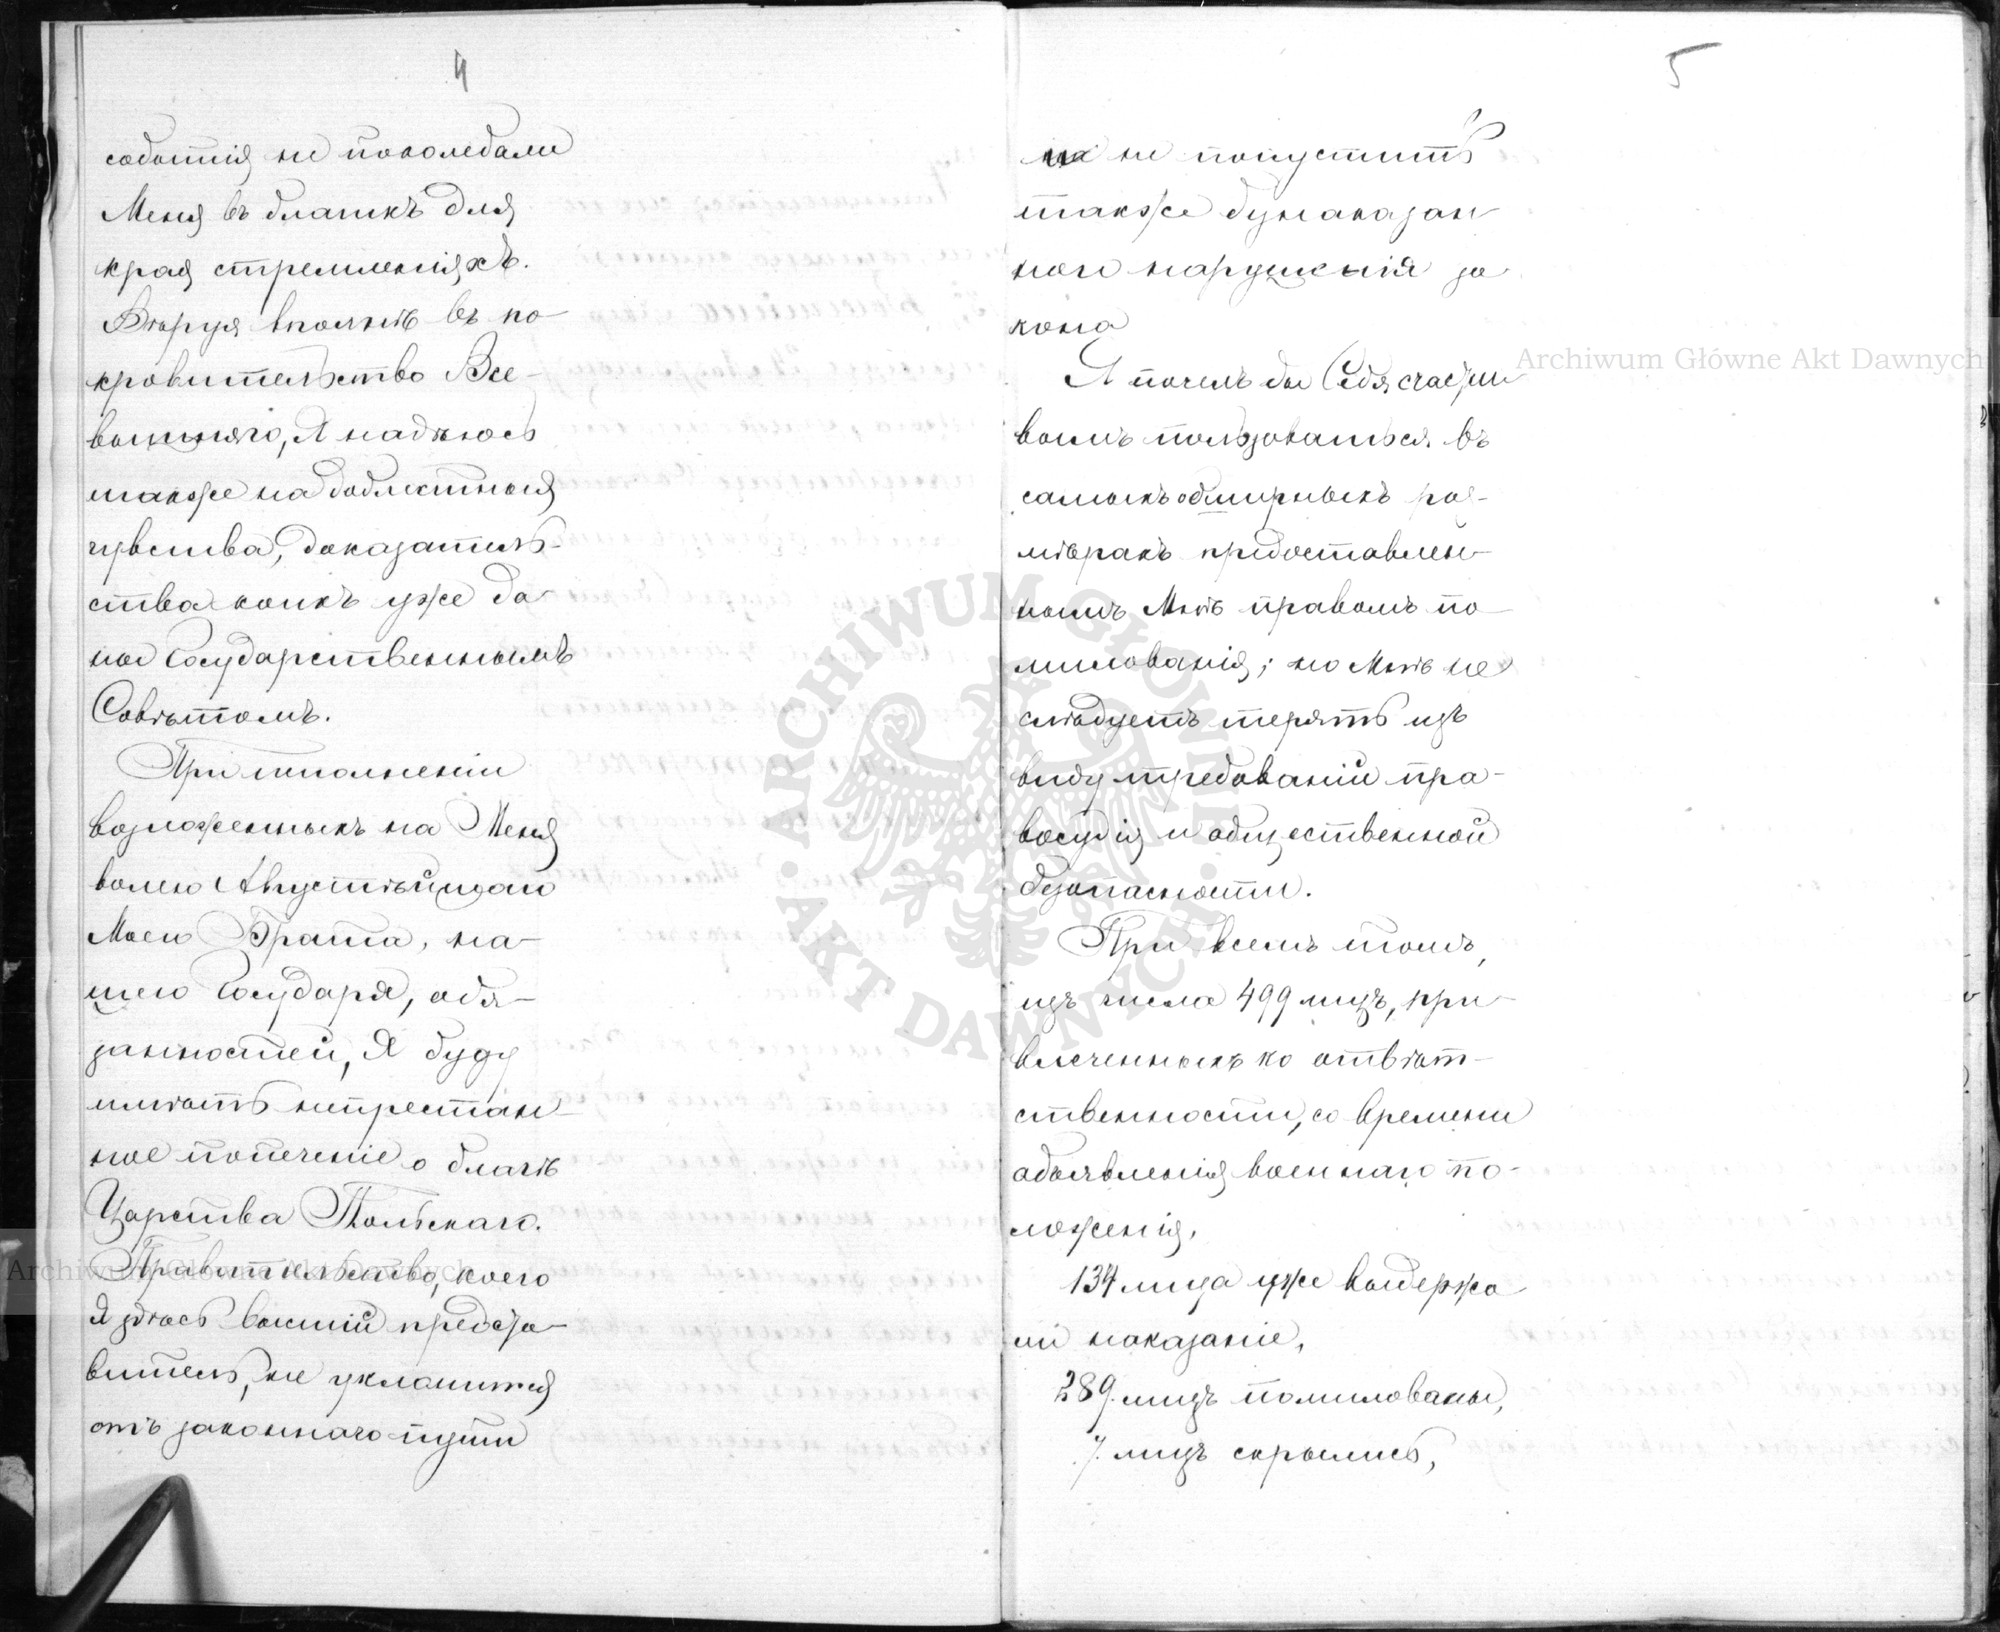 4
событія не поколебали
Меня въ благихъ для
края стремленіяхъ.
Вѣруя вполнѣ въ по-
кровительство Все-
вышняго, Я надѣюсь
также на доблестныя
чувства, доказатель-
ства коихъ уже да-
ны Государственнымъ
Совѣтомъ.
При исполненіи
возложенныхъ на Меня
волею Августѣйшаго
Моего Брата, на-
шего Государя, обя-
занностей, Я буду
имѣть непрестан-
ное попеченіе о благѣ
Царства Польскаго.
Правительство, коего
Я здѣсь высшій предста-
витель, не уклонится
отъ законнаго пути
5
и не попуститъ
также безнаказан-
наго нарушенія за
кона
Я почелъ бы Себя счастли
вымъ пользоваться въ
самыхъ обширныхъ раз-
мѣрахъ предоставлен-
нымъ Мнѣ правомъ по-
милованія; но Мнѣ не
слѣдуетъ терять изъ
виду требованій пра-
восудія и общественной
безопасности.
При всемъ томъ,
изъ числа 499 лицъ, при-
влеченныхъ ко отвѣт-
ственности, со времени
объявленія военнаго по-
ложенія,
134 лица уже выдержа
ли наказаніе,
289 лицъ помилованы,
7 лицъ скрылись,
Archiwum Główne Akt Dawnych
Archiwum Główne Akt Dawnych
ARCHIWUM GŁÓWNE · AKT DAWNYCH ·